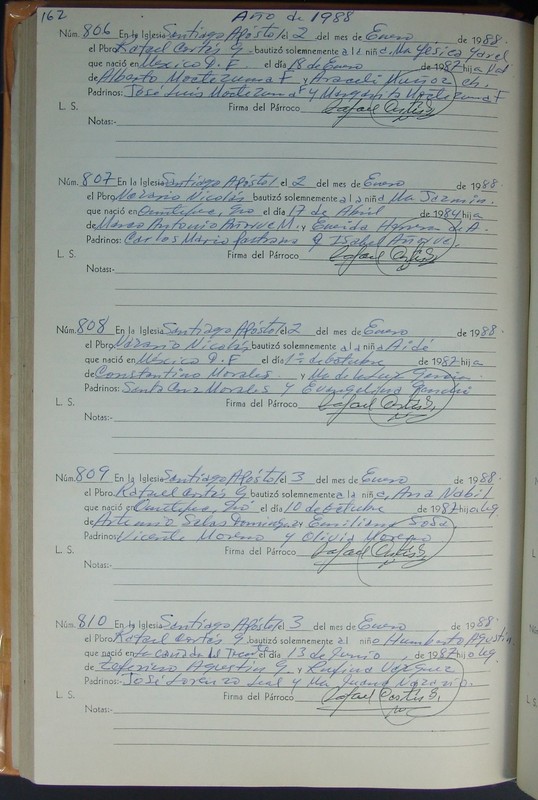 162 Año de 1988
Núm. 806 En la Iglesia Santiago Apóstol el 2 del mes de Enero de 1988.
el Pbro. Rafael Cortés G. bautizó solemnemente a la niña, Ma Yésica Yarel
que nació en México D.F. el día 18 de Enero de 1987 hija
de Alberto Moctezuma F. y Araceli Muñoz Ch.
Padrinos: José Luis Moctezuma F y Margarita Moctezuma F
L. S. Firma del Párroco Rafael Cortés G.
Notas:
Núm. 807 En la Iglesia Santiago Apóstol el 2 del mes de Enero de 1988.
el Pbro. Nazario Nicolás bautizó solemnemente a la niña Ma Jazmín.
que nació en Ometepec, Gro el día 17 de Abril de 1984 hija
de Marco Antonio Añorve M. y Eneida Herrera de A.
Padrinos: Carlos Mario Pastrana G Isabel Añorve.
L. S. Firma del Párroco Rafael Cortés G.
Notas:
Núm. 808 En la Iglesia Santiago Apóstol el 2 del mes de Enero de 1988.
el Pbro. Nazario Nicolás bautizó solemnemente a la niña Aidé
que nació en México D.F el día 1º de Octubre de 1987 hija
de Constantino Morales. y Ma de la Luz García
Padrinos: Santa Cruz Morales y Evangelina
L. S. Firma del Párroco Rafael Cortés G.
Notas:
Núm. 809 En la Iglesia Santiago Apóstol el 3 del mes de Enero de 1988.
el Pbro. Rafael Cortés G. bautizó solemnemente a la niña, Ana Nabil
que nació Ometepec, Gro el día 10 de Octubre de 1987 hija leg.
de Artemio Salas Domínguez y Emiliana Sosa
Padrinos Vicente Moreno y Olivia Moreno
L. S. Firma del Párroco Rafael Cortés G
Notas:
Núm. 810 En la Iglesia Santiago Apóstol el 3 del mes de Enero de 1988.
el Pbro. Rafael Cortés G. bautizó solemnemente al niño Humberto Agustín
que nació en La Caña del Trece el día 13 de Junio de 1987 hijo leg.
de Zeferino Agustín G. y Rufina Vázquez
Padrinos: José Lorenzo Leal y Ma Juana Nazario.
L. S. Firma del Párroco Rafael Cortés G.
Notas: